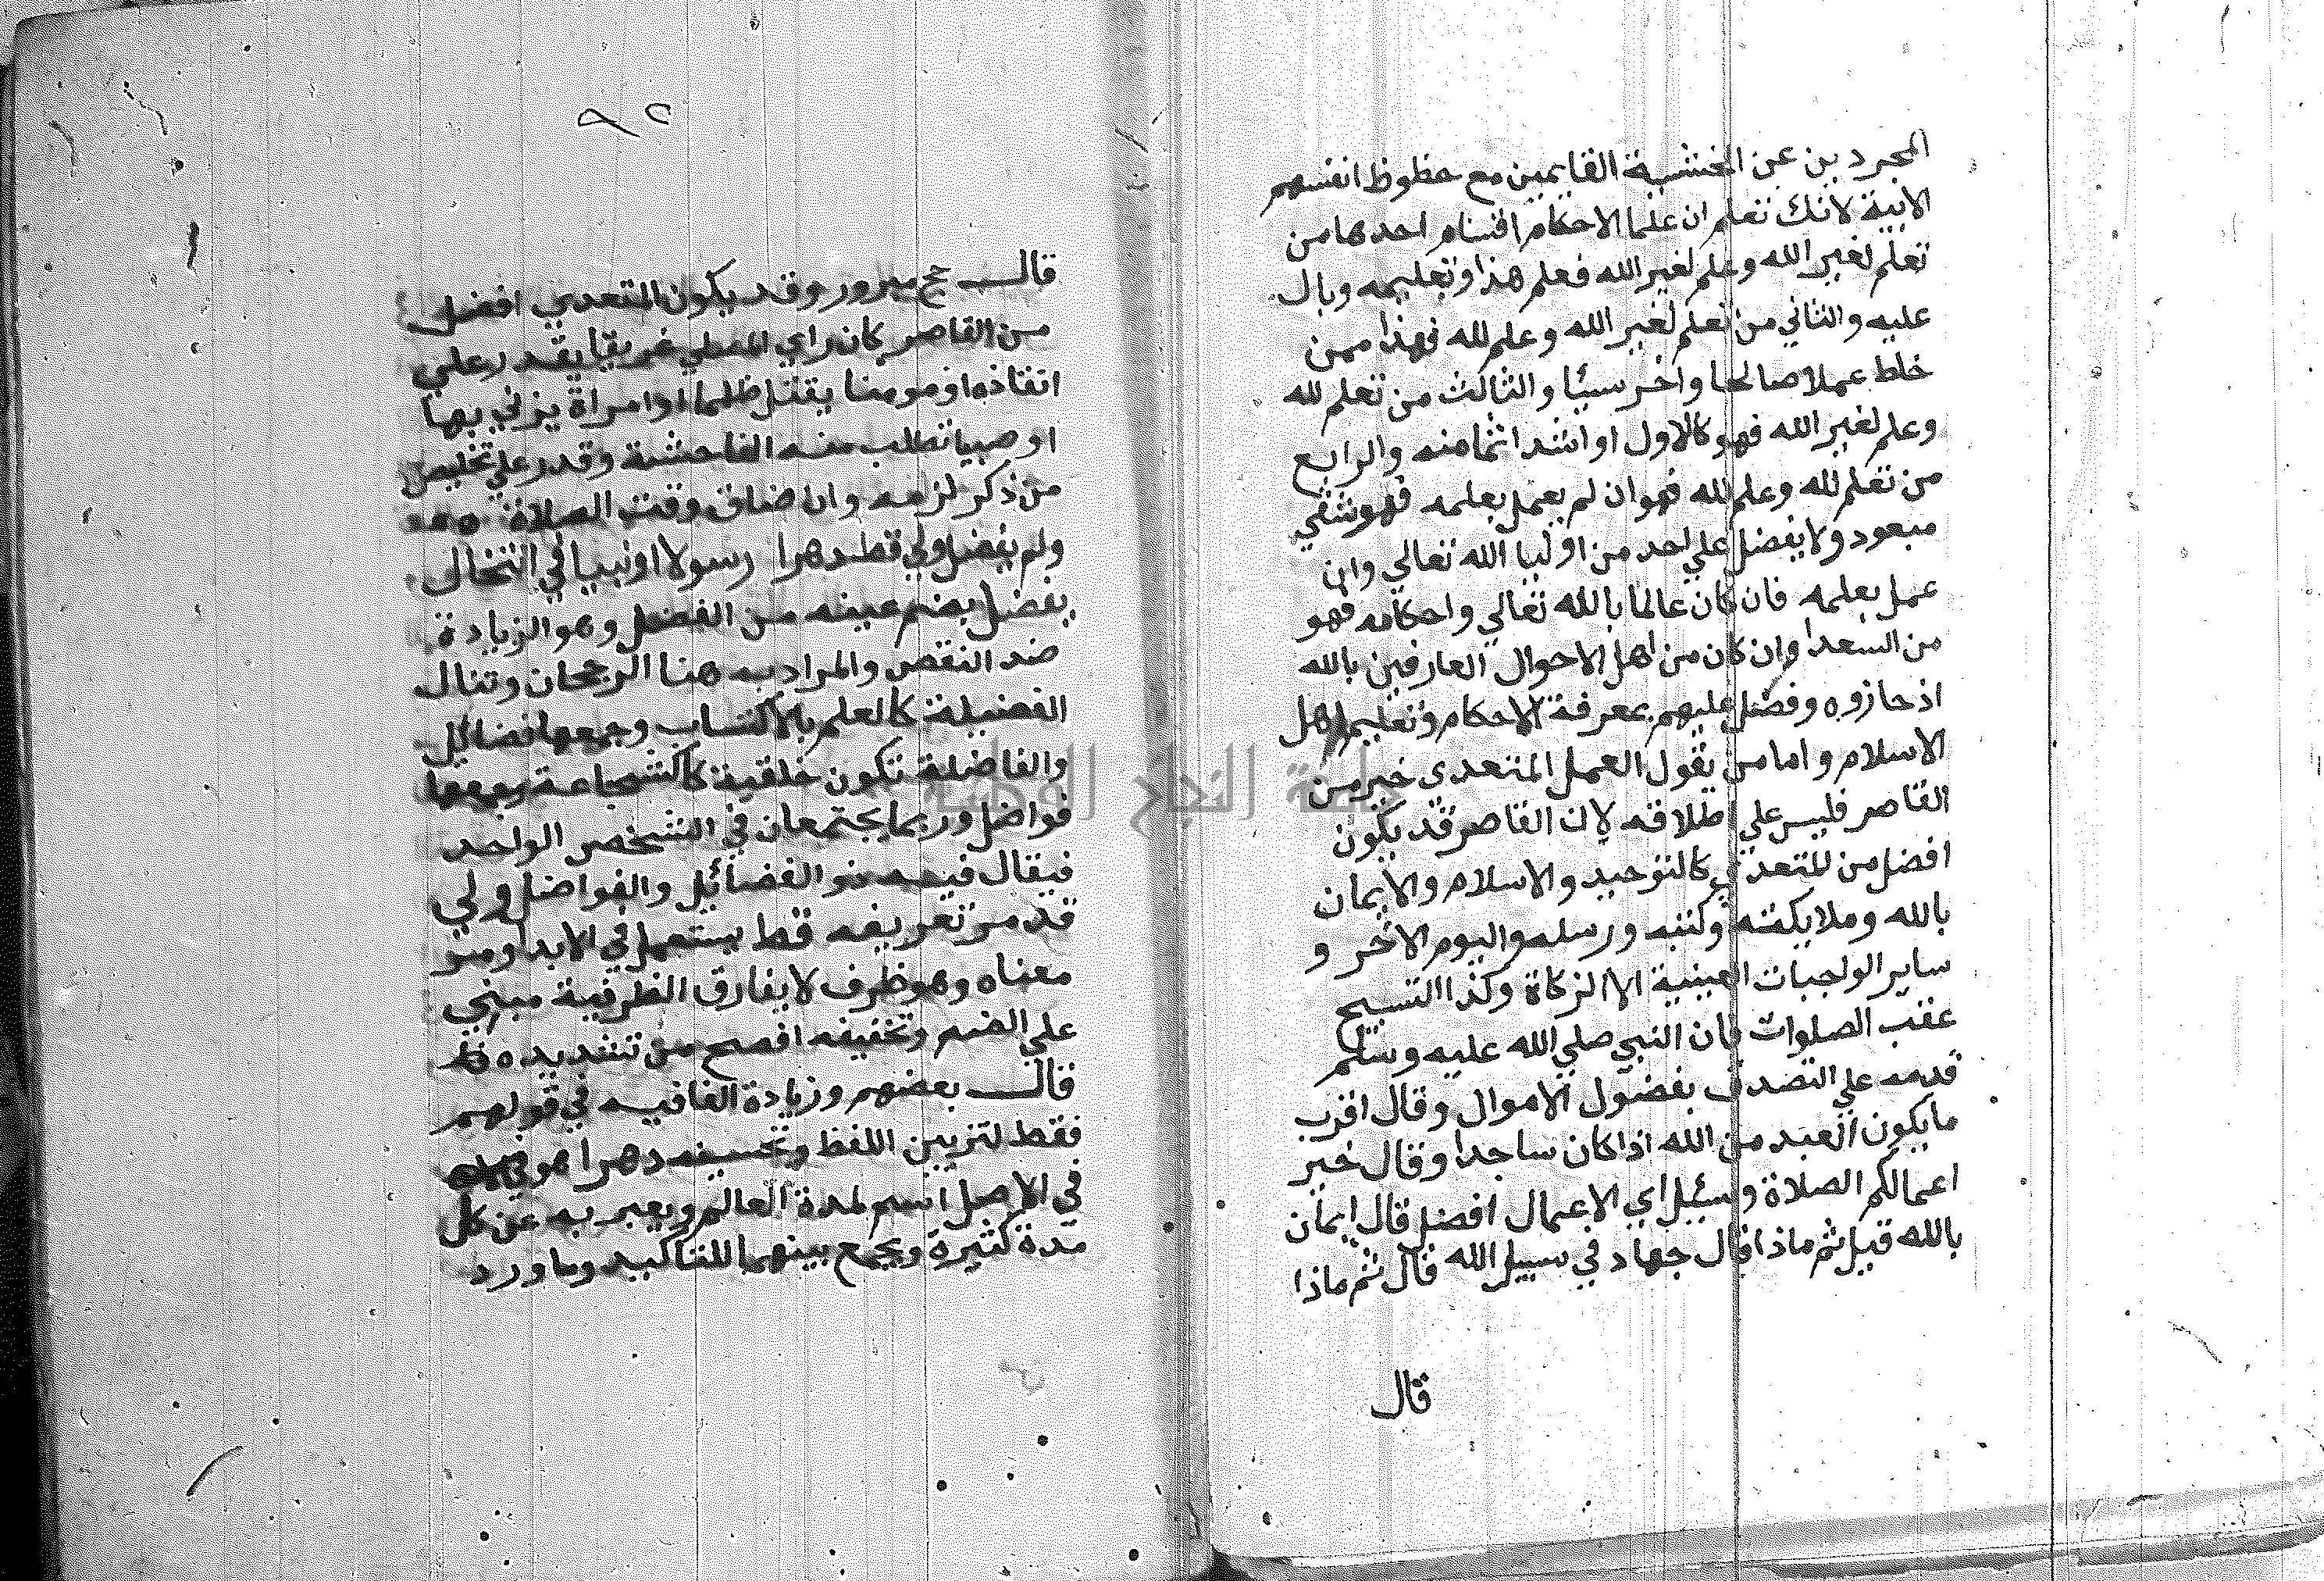 المجردين عن الخشية القايمين مع حظوظ انفسهم
الابية لانك تعلم ان علما الاحكام اقسام احدها من
تعلم لغير الله وعلم لغير الله فعلم هذا وتعليمه وبال
عليه والثاني من تعلم لغير الله وعلم لله فهذا ممن
خلط عملا صالحا واخر سيئا والثالث من تعلم لله
وعلم لغير الله فهو كالاول او اشد اثما منه والرابع
من تعلم لله وعلم لله فهو ان لم يعمل بعلمه فهو شقي
مبعود ولا يفضل علي احد من اوليا الله تعالي وان
عمل بعلمه فان كان عالما بالله تعالي واحكامه فهو
من السعدا وان كان من اهل الاحوال العارفين بالله
اذ حازوه وفضل عليهم بمعرفة الاحكام وتعليم اهل
الاسلام واما من يقول العمل المتعدى خير من
القاصر فليس علي اطلاقه لان القاصر قد يكون
افضل من المتعدي كالتوحيد والاسلام والايمان
بالله وملايكته وكتبه ورسله واليوم الاخر و
ساير الواجبات العينية الا الزكاة وكذا التسبيح
عقب الصلوات فان النبي صلي الله عليه وسلم
قدمه علي التصدق بفضول الاموال وقال اقرب
ما يكون العبد من الله اذا كان ساجدا وقال خير
اعمالكم الصلاة وسئيل اي الاعمال افضل قال ايمان
بالله قيل ثم ماذا قال جهاد في سبيل الله قال ثم ماذا
قال
٩٢
قال حج مبرور وقد يكون المتعدي افضل
من القاصر كان راي المصلي غريقا يقدر علي
انقاذه او مومنا يقتل ظلما او امراة يزني بها
او صبيا تطلب منه الفاحشة وقدر علي تخليص
من ذكر لزمه وان ضاق وقت الصلاة
ولم يفضل ولي قط دهرا رسولا او نبيا في انتحال
يفضل بضم عينه من الفضل وهو الزيادة
ضد النقص والمراد به هنا الرجحان وتنال
الفضيلة كالعلم بالاكتساب وجمعها فضائل
والفاضلة تكون خلقية كالشجاعة وجمعها
فواضل وربما يجتمعان في الشخص الواحد
فيقال فيه ذو الفضائل والفواضل ولي
قد مر تعريفه قط يستعمل في الابد ومر
معناه وهو ظرف لا يفارق الظرفية مبني
علي الضم وتخفيفه افصح من تشديده
قال بعضهم وزيادة الفا فيه في قولهم
فقط لتزيين اللفظ وتحسينه دهرا هو
في الاصل اسم لمدة العالم ويعبر به عن كل
مدة كثيرة ويجمع بينهما للتاكيد وما ورد
جامعة النجاح الوطنية